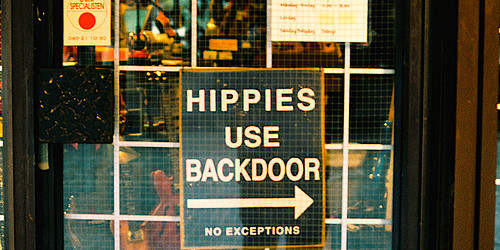 SPECIALISTEN
040-21 10 30
HIPPIES
USE
BACKDOOR
NO EXCEPTIONS